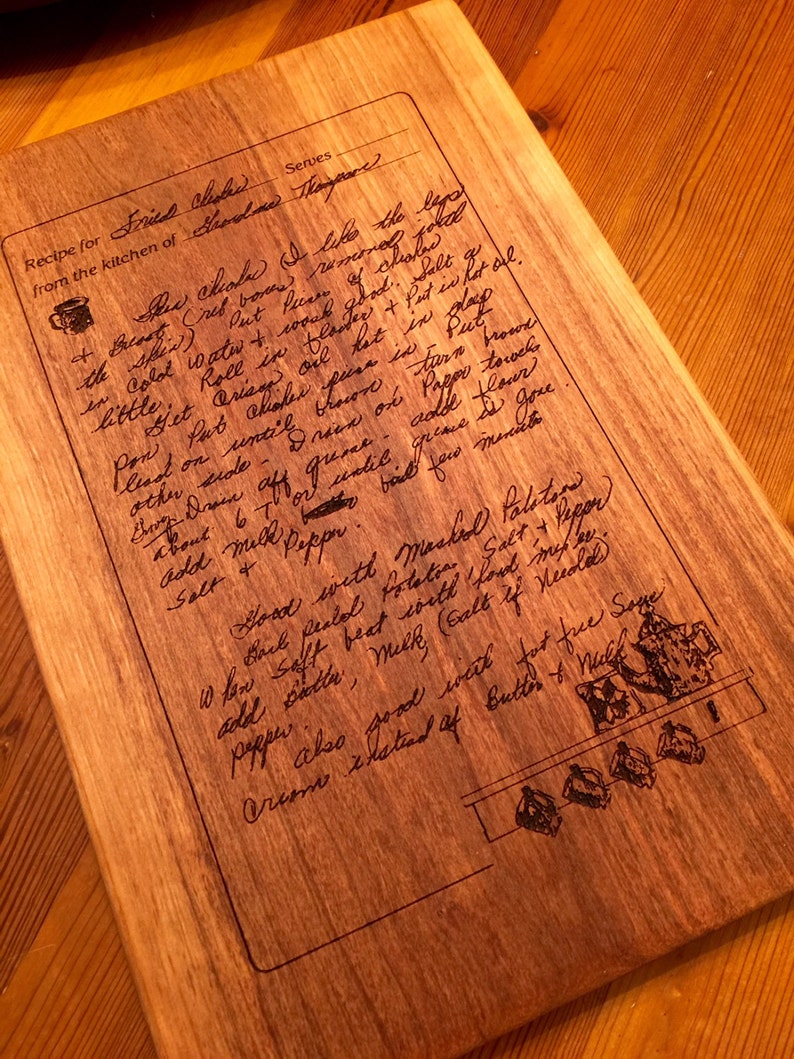 Recipe for Fried Chicken Serves
from the kitchen of Grandma Thompson
Skin chicken (I like the legs
+ Breast (rib bones removed with
the skin) Put Pieces of chicken
in cold water & wash good. Salt a
little. Roll in flour + Put in hot oil.
Get Crisco oil hot in deep
pan Put chicken pieces in. Put
lead on until brown turn brown
other side - Drain on Paper towels
Gravy - Drain off grease - add flour
about 6 T or until grease is gone.
add milk boil few minutes
Salt & Pepper.
Good with Mashed Potatoes
Boil pealed Potatoes, Salt & Pepper
When Soft beat with food mixer.
add Butter, Milk, (Salt if Needed)
pepper.
Also good with fat free Sour
Cream instead of Butter & Milk